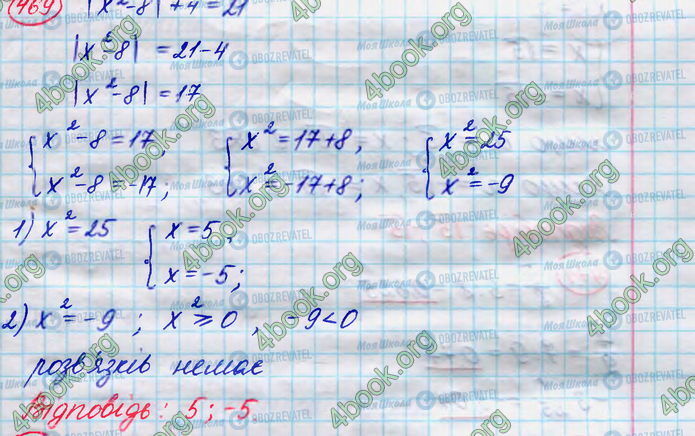 469) |x²-8|+4=21
|x²-8| =21-4
|x²-8|=17
{x²-8=17, {x²=17+8, {x²=25
{x²-8=-17; {x²=-17+8; {x²=-9
1) x²=25 {x=5,
{x=-5;
2) x²=-9 ; x²≥0 , -9<0
розв'язків немає
Відповідь: 5; -5
4book.org
МояШкола
OBOZREVATEL